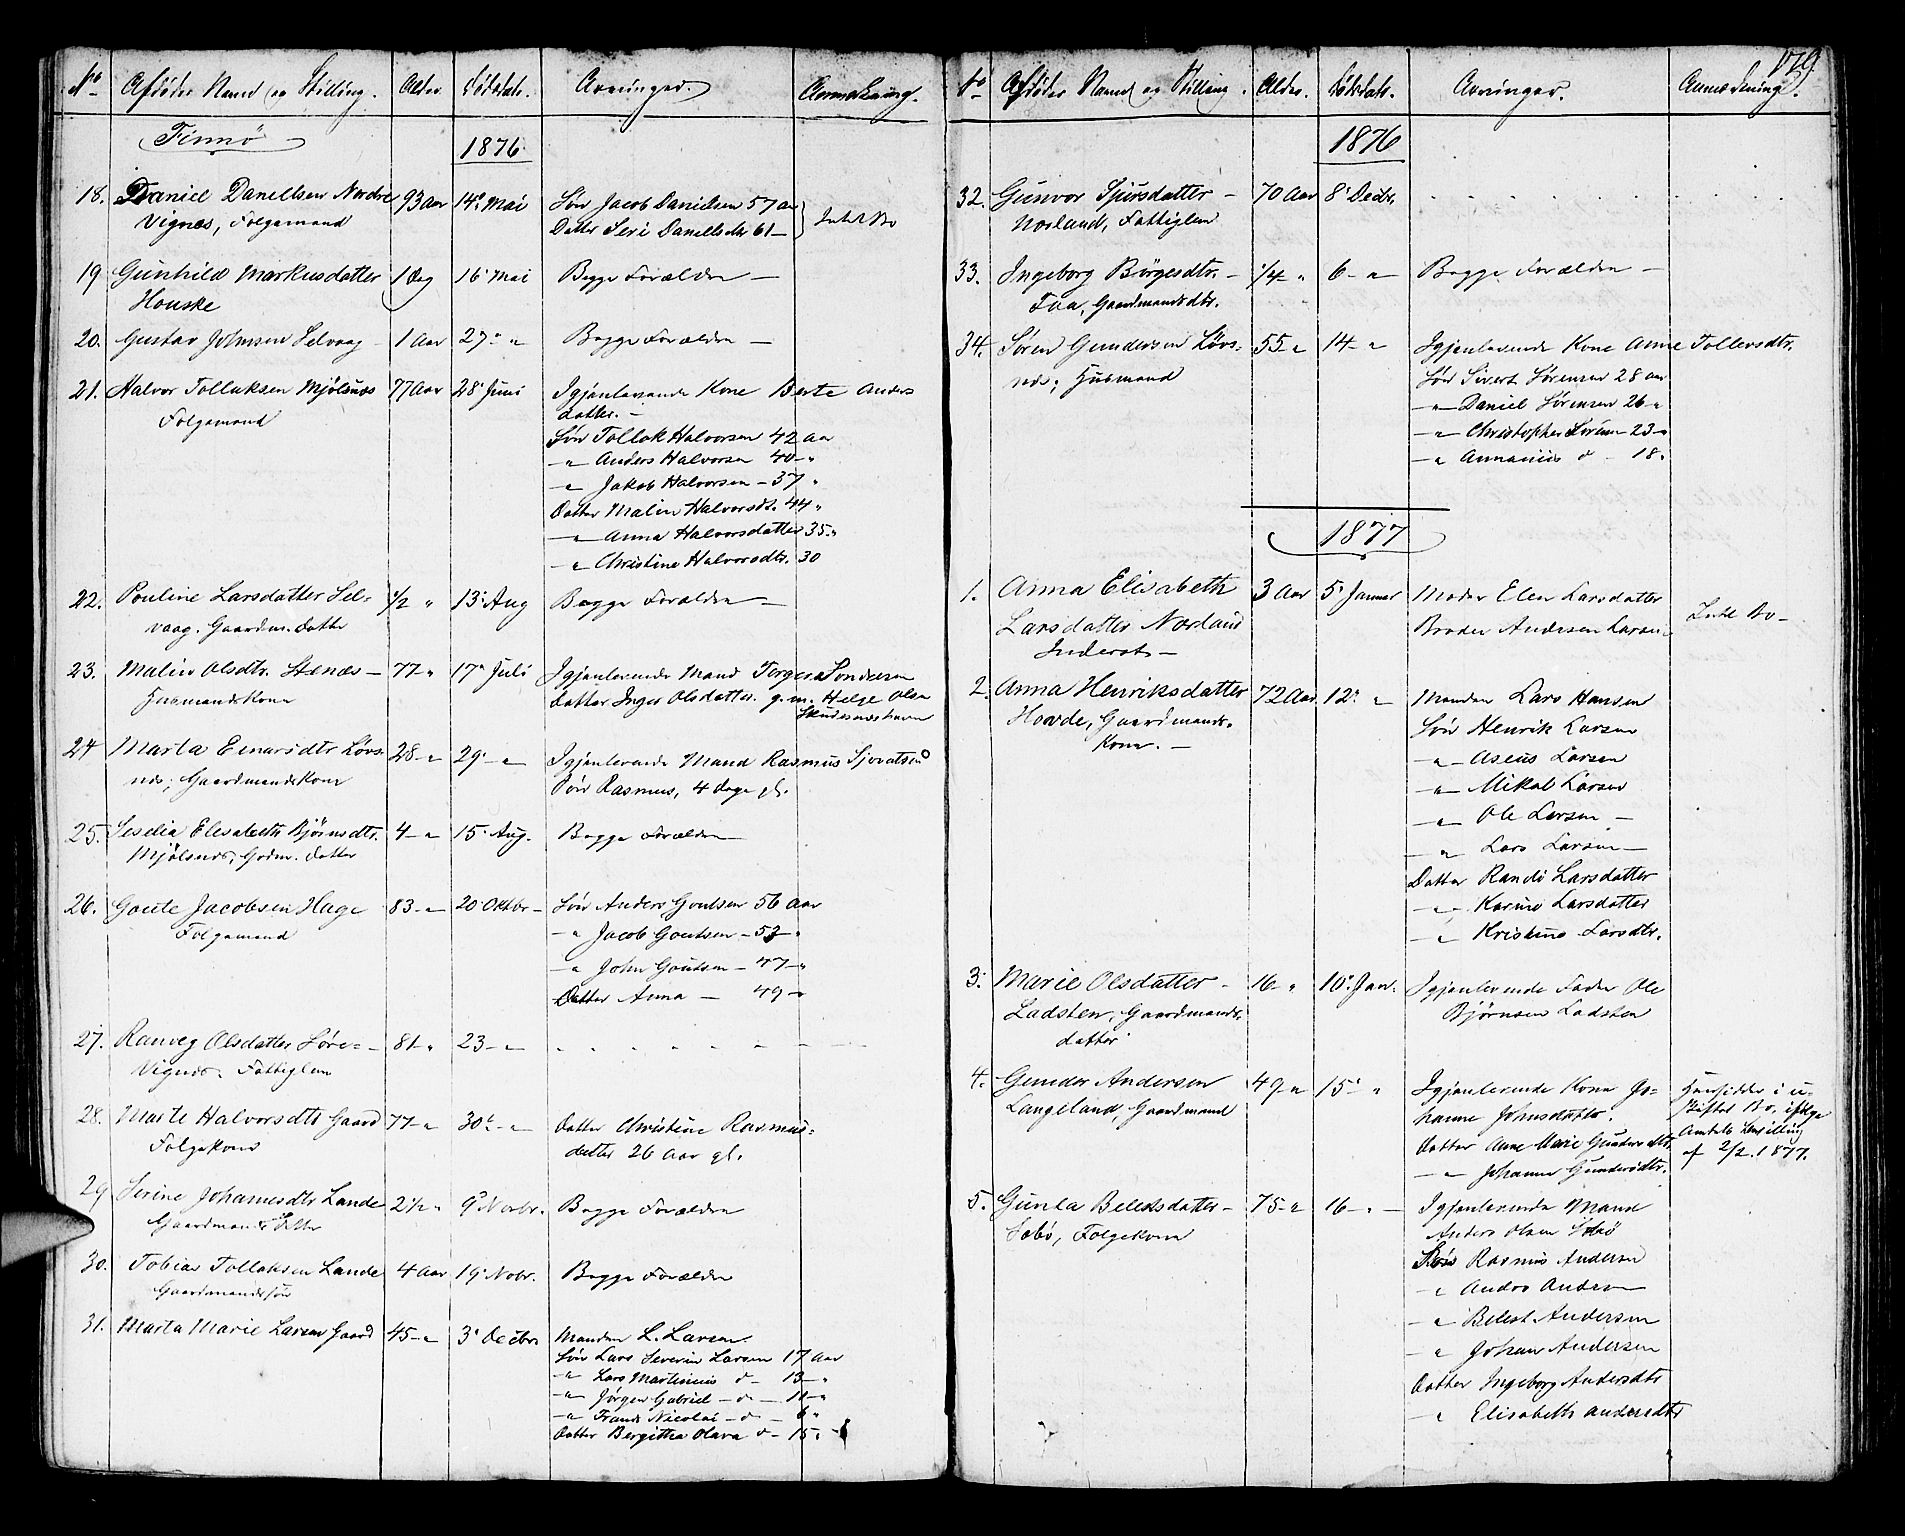 No Afdødes Navn og Stilling. Alder Dødsdato. Arvinger. Anmærkning.
Finnø
1876
18. Daniel Daniellsen Nordre 93 Aar 14' Mai Søn Jacob Danielsen 57 aar
Vignes, Folgemand Datter Seri Daniellsdtr 61 — Intet Bo
19 Gunhild Markusdatter 1 Dag 16' Mai Begge Forældre —
Houske
20. Gustav Johnsen Selvaag 1 Aar 27' " Begge Forældre —
21. Halvor Tollaksen Mjølsnes 77 Aar 28' Juni Igjenlevende Kone Berte Anders
Folgemand datter. —
Søn Tollak Halvorsen 42 aar
—" Anders Halvorsen 40 — "
—" Jakob Halvorsen — 37 "
Datter Malin Halvorsdt. 44 "
—" Anna Halvorsdatter 35 "
—" Christine Halvorsdtr. 30
22. Pouline Larsdatter Sel- 1/2 " 13' Aug Begge Forældre —
vaag. Gaardm. datter
23. Malin Olsdtr. Stenæs — 77 " 17' Juli Igjenlevende Mand Torger Sondresen
Husmandskone datter Inger Olsdatter. g. m. Helge Olsen
Skudesneshavn
24 Marta Einarsdtr Løvs- 28 — " 29' — " Igjenlevende Mand Rasmus Sjovatsen
nes; Gaardmandskone Søn Rasmus, 4 dage gl.
25. Seselia Elisabeth Bjørnsdtr. 4 — " 15' Aug. Begge Forældre —
Mjølsnes, Grdm. datter
26. Goute Jacobsen Hage 83 — " 20' Oktbr — Søn Anders Goutsen 56 Aar
Folgemand —" Jacob Goutsen — 53 — "
—" John Goutsen — 47 — "
Datter Anna — 49 — "
27. Ranveg Olsdatter Søre- 81 — " 23 — "
Vignes. Fattiglem
28. Marte Halvorsdtr Gaard 77 — " 30' — " Datter Christine Rasmus-
Folgekone datter 26 Aar gl.
29 Serine Johannesdtr Lande 2 1/2 — " 9' Novbr. Begge Forældre
Gaardmands datter
30. Tobias Tollaksen Lande 4 Aar 19' Nobr. Begge Forældre
Gaardmandssøn
31. Marta Marie Larsen Gaard 45 — " 3' Decbr. Manden L. Larsen
Søn Lars Severin Larsen 17 Aar
—" Lars Martinius d — 13 — "
—" Jørgen Gabriel — d — 11 — "
—" Frants Nicolai — d — 6 "
Datter Bergitha Olava d — 15 "
179
No Afdødes Navn og Stilling. Alder. Dødsdato. Arvinger. Anmærkning.
1876
32. Gunvor Sjursdatter — 70 Aar 8' Decbr.
Norland, Fattiglem
33. Ingeborg Børgesdtr. — 1/4 " 6 — " Begge Forældre —
Faa, Gaardmandsdtr.
34. Søren Gundersen Løvs- 55 " 14 — " Igjenlevende Kone Anne Tollevsdtr.
nes; Husmand Søn Sivert Sørensen 28 aar
—" Daniel Sørensen 26 "
—" Christopher Sørensen 23 "
—" Annanias d — 18 "
1877
1. Anna Elisabeth 3 Aar 5' Januar Moder Elen Larsdatter
Larsdatter Norland Broder Andersen Larsen — Intet Bo —
Inderst —
2. Anna Henriksdatter 72 Aar 12' " Manden Lars Hansen
Hovde, Gaardmands- Søn Henrik Larsen
Kone. — —" Aseus Larsen
—" Mikal Larsen
—" Ole Larsen —
—" Lars Larsen —
Datter Randi Larsdatter
—" Karine Larsdatter
—" Kristine Larsdtr.
3. Marie Olsdatter — 16 — " 10' Jan. Igjenlevende Fader Ole
Ladsten, Gaardmands- Bjørnsen Ladsten
datter
4. Gunder Andersen 49 — " 15' " Igjenlevende Kone Jo- Hensidder i u-
Langeland, Gaardmand hanne Johnsdatter. skiftet Bo, ifølge
Datter Anne Marie Gundersdtr. Amtets bevilling
—" Johanne Gundersdtr. af 2/2. 1877.
5. Gunla Belestsdatter — 75 — " 16 — " — Igjenlevende Mand
Sæbø, Folgekone Anders Olsen Sæbø
Søn Rasmus Andersen
—" Andro Andersen
—" Belest Andersen
—" Johan Andersen
Datter Ingeborg Andersdtr
—" Elisabeth Andersdtr